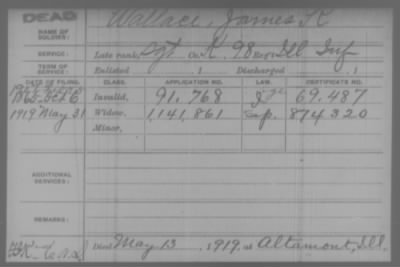 DEAD
NAME OF SOLDIER: Wallace, James K
SERVICE: Late rank, Sgt Co. K, 98 Reg't Ill Inf
TERM OF SERVICE: Enlisted , 1 Discharged , 1
DATE OF FILING. CLASS. APPLICATION NO. LAW. CERTIFICATE NO.
Invalid, 91,768 69,487
1919 May 31 Widow, 1,141,861 874320
Minor,
ADDITIONAL SERVICES:
REMARKS:
Died May 13, 1919, at Altamont, Ill.